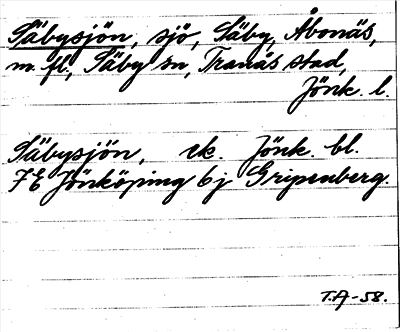 Säbysjön, sjö, Säby, Åbonäs,
m. fl., Säby sn, Tranås stad,
Jönk. l.
Säbysjön, ek. Jönk. bl.
7 E Jönköping 6j Gripenberg.
T.A-58.